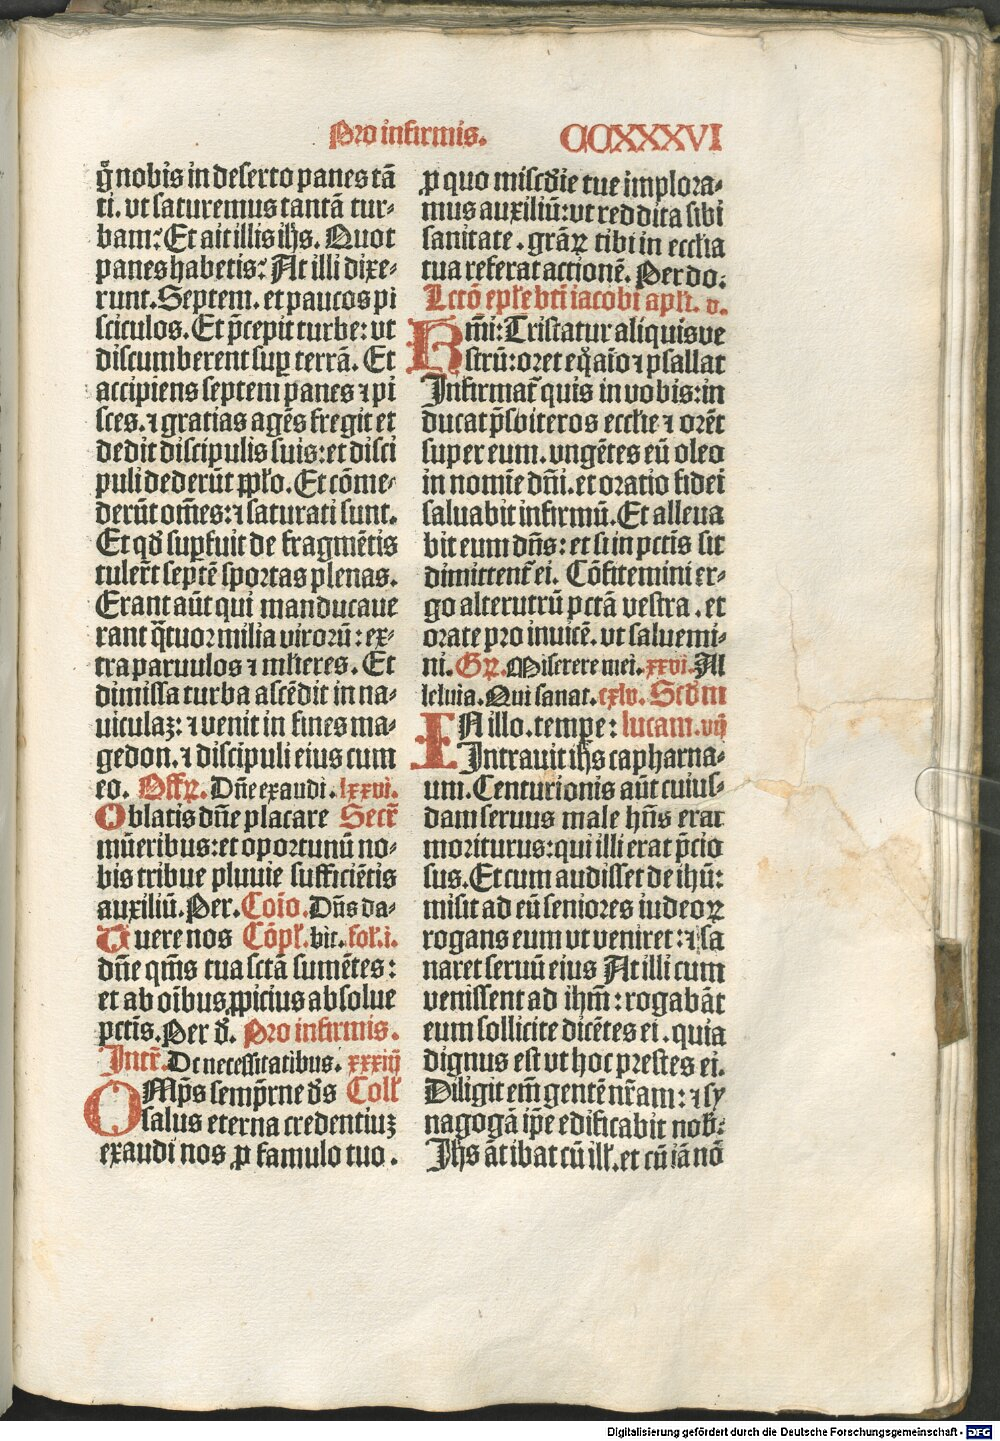 Pro infirmis. CCXXXVI
q̊ nobis in deserto panes tā
ti. vt saturemus tantā tur⸗
bam? Et ait illis ihs. Quot
panes habetis? At illi dixe⸗
runt. Septem. et paucos pi
sciculos. Et p̄cepit turbe: vt
discumberent suꝑ terrā. Et
accipiens septem panes ⁊ pi
sces. ⁊ gratias agēs fregit et
dedit discipulis suis: et disci
puli dederūt ꝓpl'o. Et cōme⸗
derūt om̄es: ⁊ saturati sunt.
Et qd' suꝑfuit de fragmētis
tuler̄t septē sportas plenas.
Erant aūt qui manducaue
rant q̄tuor milia virorū: ex⸗
tra paruulos ⁊ ml'ieres. Et
dimissa turba ascēdit in na⸗
uiculaꝫ: ⁊ venit in fines ma⸗
gedon. ⁊ discipuli eius cum
eo. Offꝝ. Dn̄e exaudi. lxxvi.
Oblatis dn̄e placare Secr̄
mūeribus: et oportunū no⸗
bis tribue pluuie sufficiētis
auxiliū. Per. Coīo. Dn̄s da⸗
Tuere nos Cōpl'. bit. fol'. i.
dn̄e qm̄s tua sctā sumētes:
et ab oībus ꝓpicius absolue
pctīs. Per d'. Pro infirmis.
Intr̄. De necessitatibus. xxxiiij
OMp̄s semp̄rne d's Coll'
salus eterna credentiuꝫ
exaudi nos ꝓ famulo tuo.
ꝓ quo mis͛cd'ie tue implora⸗
mus auxiliū: vt reddita sibi
sanitate. grāꝝ tibi in eccl'ia
tua referat actionē. Per do:
Lctō epl'e bt̄i iacobi apl'i. v.
Hm̄i: Tristatur aliquis ve
strū: oret eq̊ aīo ⁊ psallat
Infirmat̄ quis in vobis: in
ducat p̄sbiteros eccl'ie ⁊ orēt
super eum. vngētes eū oleo
in nomīe dn̄i. et oratio fidei
saluabit infirmū. Et alleua
bit eum dn̄s: et si in pctīs sit
dimittent̄ ei. Cōfitemini er⸗
go alterutrū pctā vestra. et
orate pro inuicē. vt saluemi⸗
ni. Gꝝ. Miserere mei. xxvi. Al
leluia. Qui sanat. cxlv. Scd'm
IN illo. temꝑe: lucam. vij
Intrauit ihs capharna⸗
um. Centurionis aūt cuius⸗
dam seruus male hn̄s erat
moriturus: qui illi erat p̄cio
sus. Et cum audisset de ihū:
misit ad eū seniores iudeoꝝ
rogans eum vt veniret: ⁊ sa
naret seruū eius At illi cum
venissent ad ihm̄: rogabāt
eum sollicite dicētes ei. quia
dignus est vt hoc prestes ei.
Diligit em̄ gentē nr̄am: ⁊ sy
nagogā ip̄e edificabit nob':
Ihs āt ibat cū ill'. et cū iā nō
Digitalisierung gefördert durch die Deutsche Forschungsgemeinschaft - DFG